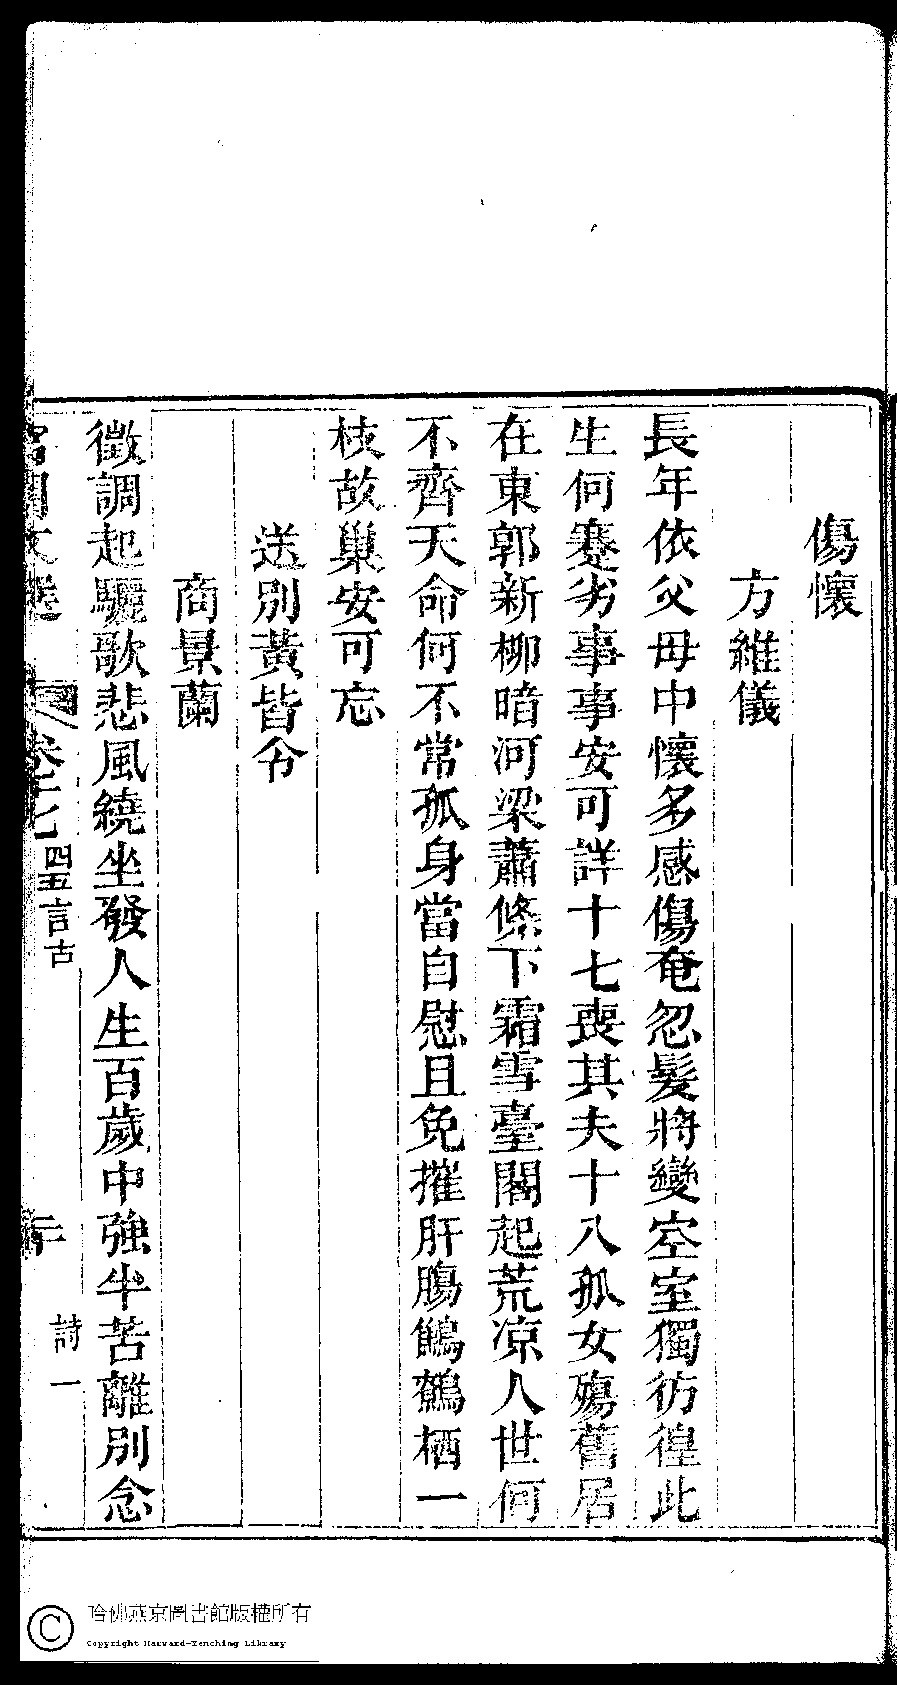 傷懷
方維儀
長年依父母中懷多感傷奄忽髮將變空室獨彷徨此
生何蹇劣事事安可詳十七喪其夫十八孤女殤舊居
在東郭新柳暗河梁蕭條下霜雪臺閣起荒凉人世何
不齊天命何不常孤身當自慰且免摧肝腸鷦鷯栖一
枝故巢安可忘
送別黃皆令
商景蘭
徵調起驪歌悲風繞坐發人生百歲中強半苦離別念
宮閨文選
卷十七
四五言古
二十
詩一
哈佛燕京圖書館版權所有
Copyright Harvard-Yenching Library